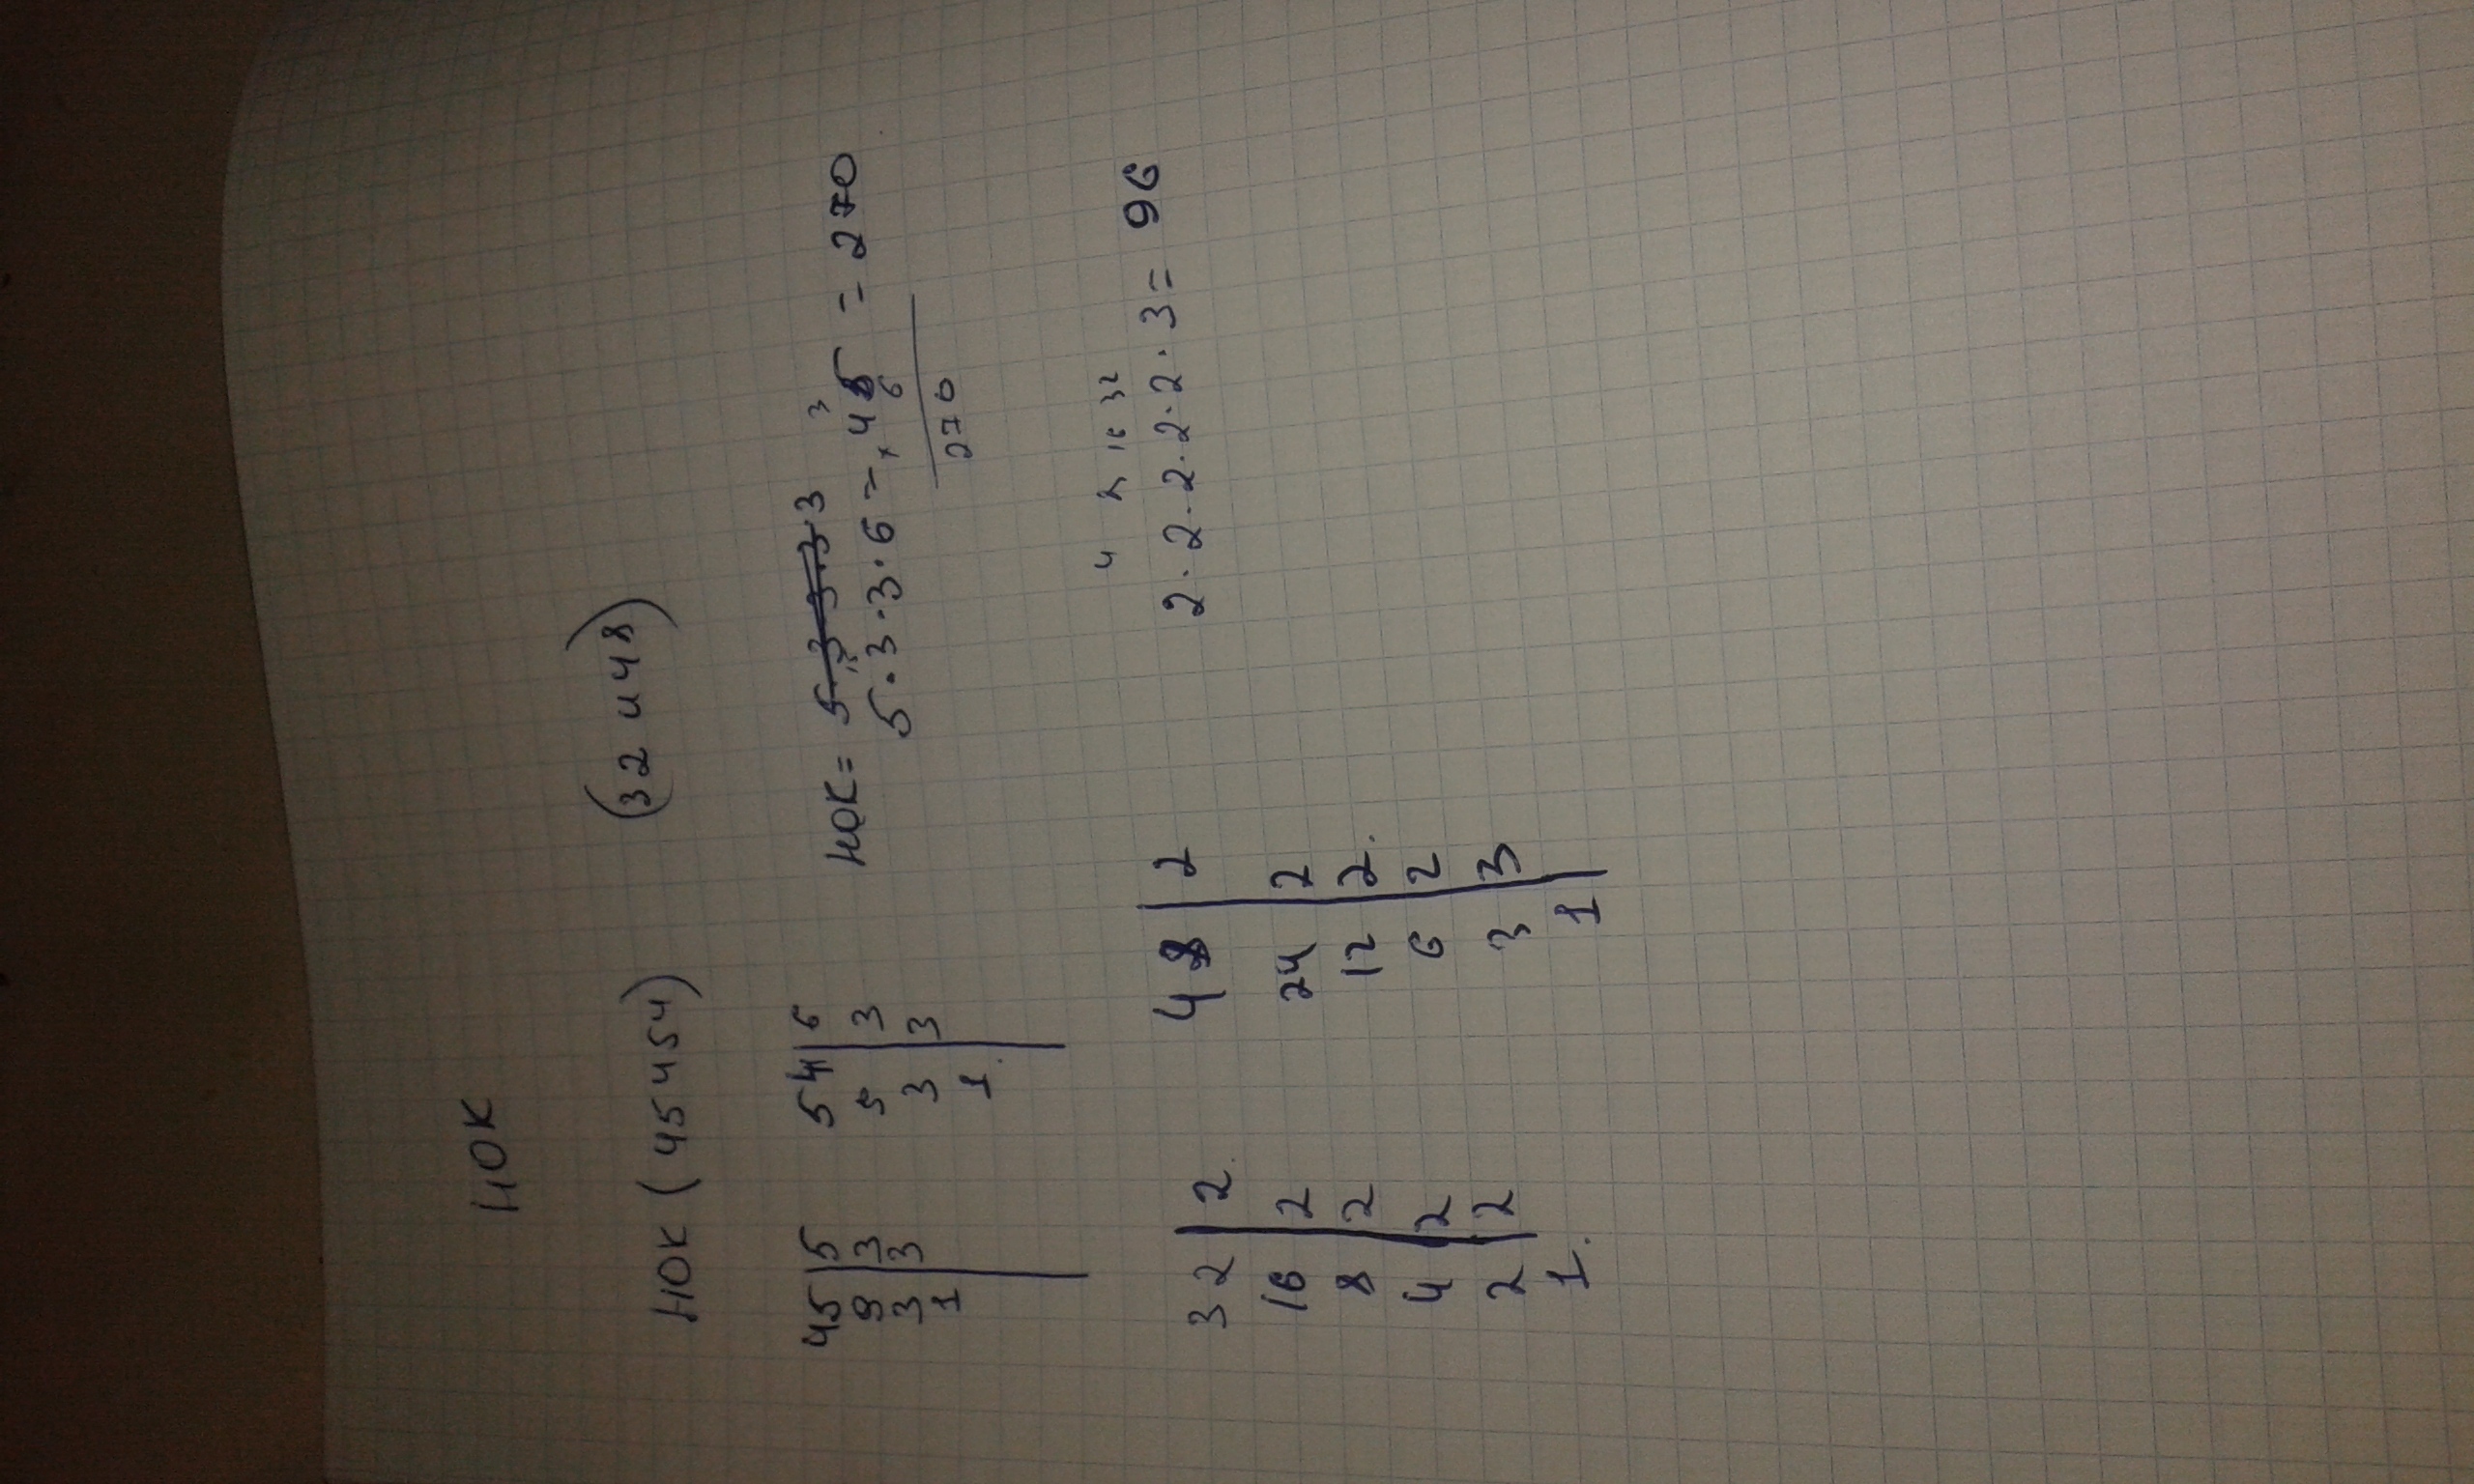 НОК
НОК (45 и 54) (32 и 48)
45 5 54 6 НОК = 5 3 3 3 3
9 3 9 3 5 · 3 · 3 · 6 = 45 = 270
3 3 3 3 × 6
1 1 270
4 8 16 32
32 2 48 2 2 · 2 · 2 · 2 · 2 · 3 = 96
16 2 24 2
8 2 12 2
4 2 6 2
2 2 3 3
1 1